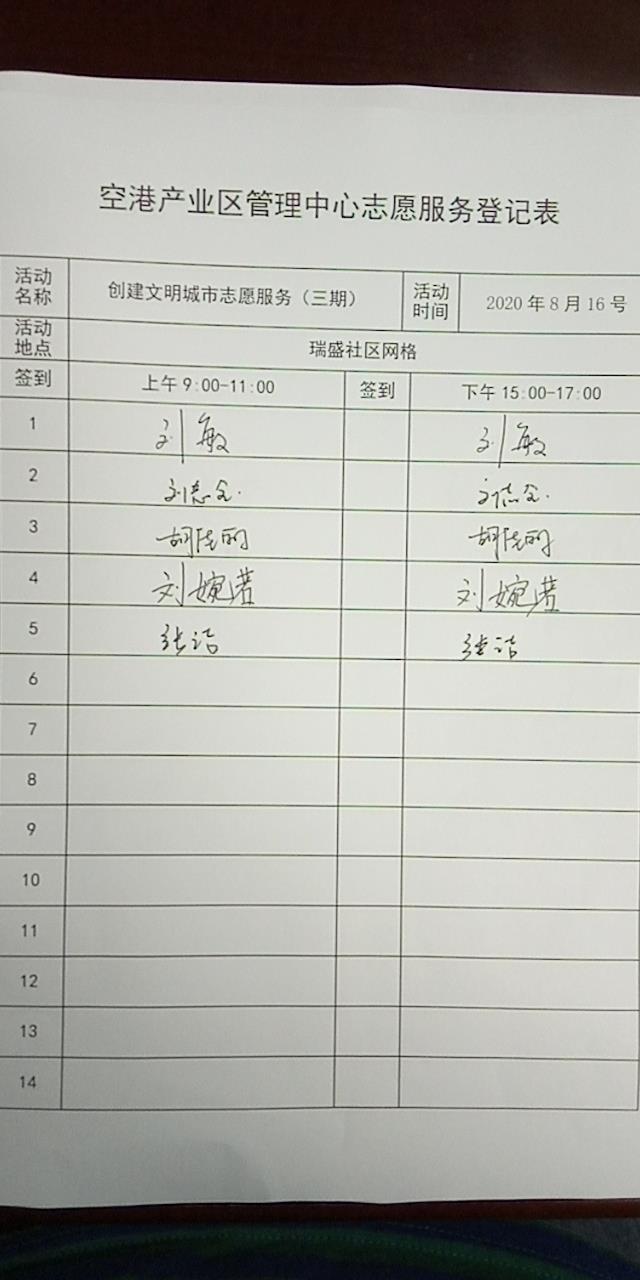 空港产业区管理中心志愿服务登记表
活动名称 创建文明城市志愿服务（三期） 活动时间 2020 年 8 月 16 号
活动地点 瑞盛社区网格
签到 上午 9:00-11:00 签到 下午 15:00-17:00
1 刘敏 刘敏
2 刘志全. 刘志全.
3 胡
4 刘婉诺 刘婉诺
5 张洁 张洁
6
7
8
9
10
11
12
13
14